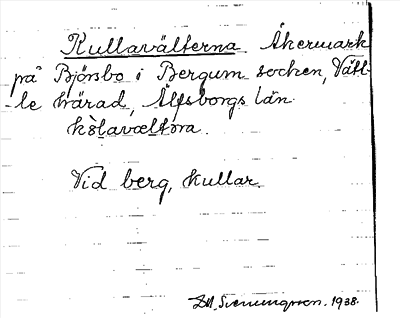 Kullavälterna Åkermark
på Björsbo i Bergum socken, Vätt-
-le härad, Älfsborgs län.
kòlavæltəra.
Vid berg, kullar.
1938.